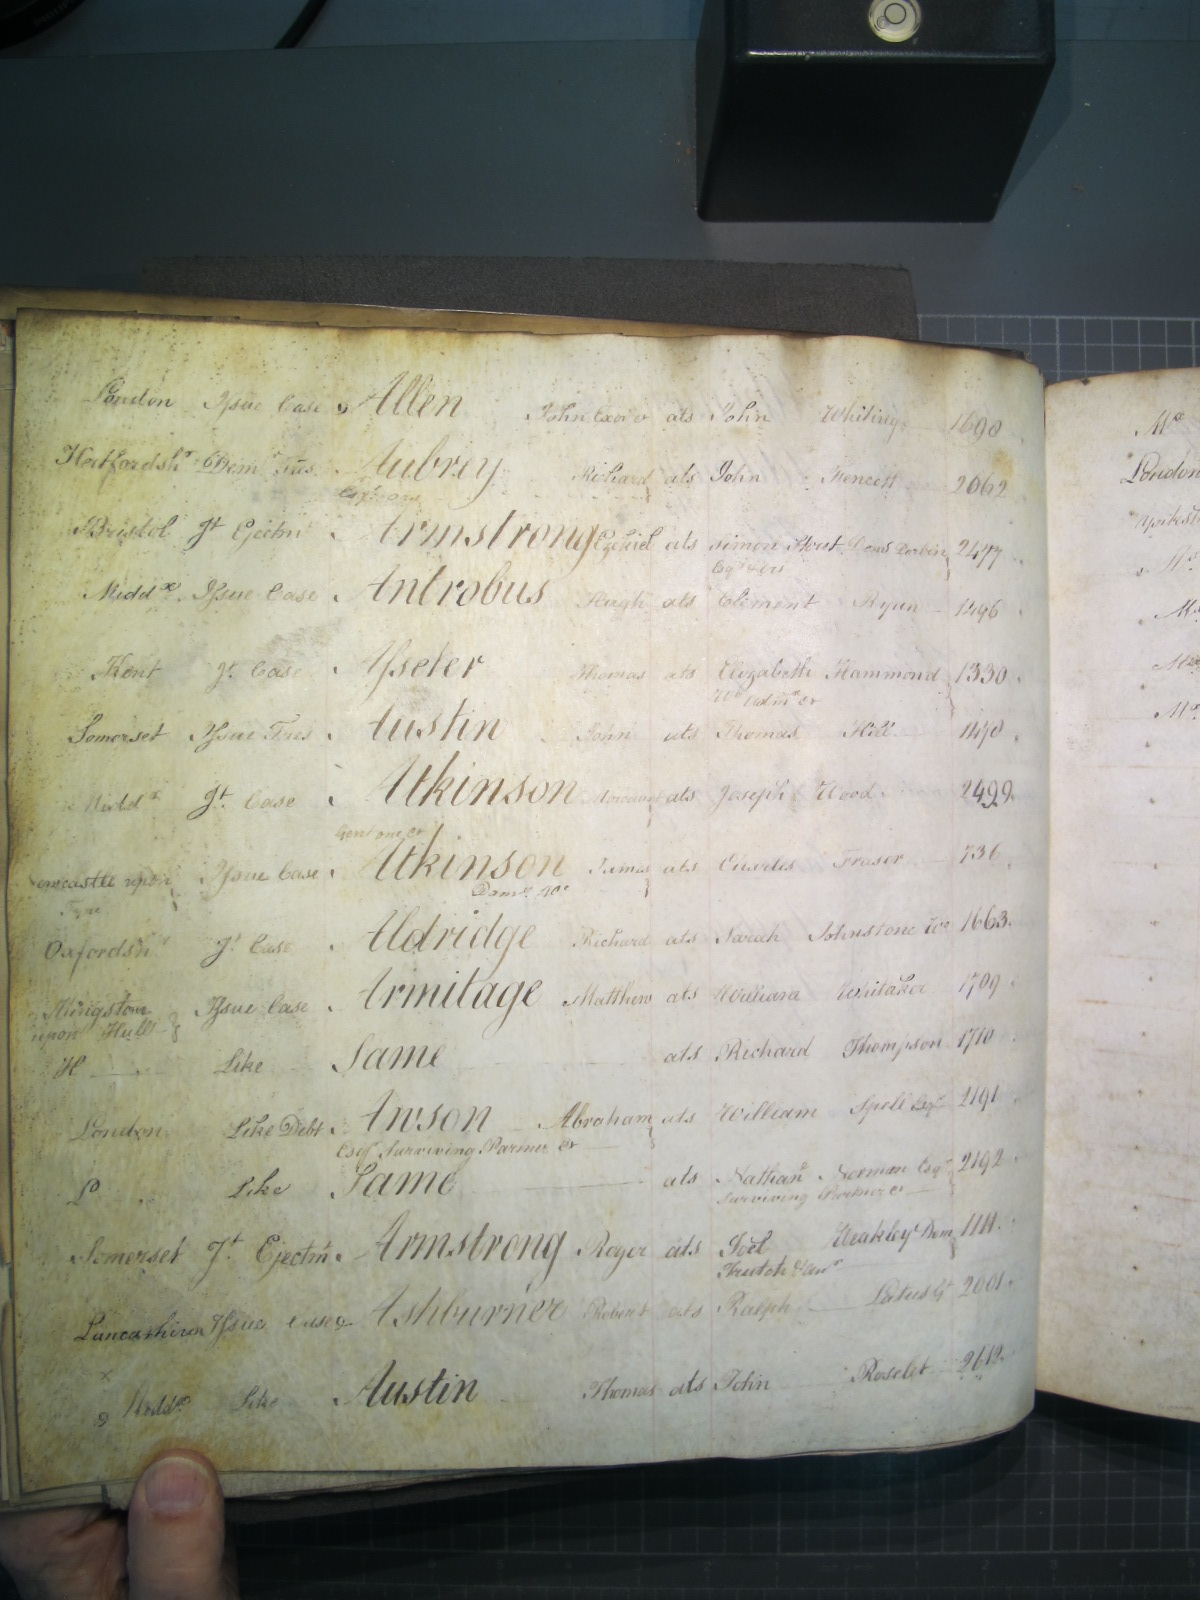 London Issue Case Allen John Exor &c ats John Whiting 1698
Hertfordshr Dem Tres Aubrey Richard ats John 2062
Esqr &ors
Bristol Jt Ejectmt Armstrong Ezekiel ats Simon Stout Dems Corbin 2477
Esqr &ors
Middx Issue Case Antrobus Hugh ats Clement Ryan 1496
Kent Jt Case Isseler Thomas ats Elizabeth Hammond 1330
Wo Admx &c
Somerset Issue Tres Austin John ats Thomas Hill 1470
Middx Jt Case Atkinson ats Joseph Wood 2499
Gent one &c
Newcastle upon Issue Case Atkinson James ats Fraser 736
Tyne
Oxfordshr Jt Case Aldridge Richard ats Sarah Johnstone Wo 1663
Kingston Issue Case Armitage Matthew ats William Whitaker 1709
upon Hull
H Like Same ats Richard Thompson 1710
London Like Debt Awson Abraham ats William Spell Esqr 2191
Esqr Surviving Partner &c
Lo Like Same ats Nathanl Norman Esqr 2192
Surviving Partner &c
Somerset Jt Ejectmt Armstrong Roger ats Joel Weakley Dem 1111
&anr
Lancashire Issue Case Ashburner Robert ats Ralph Latus Gt 2001
Middx Like Austin Thomas ats John Roselet 2612
Mx
London